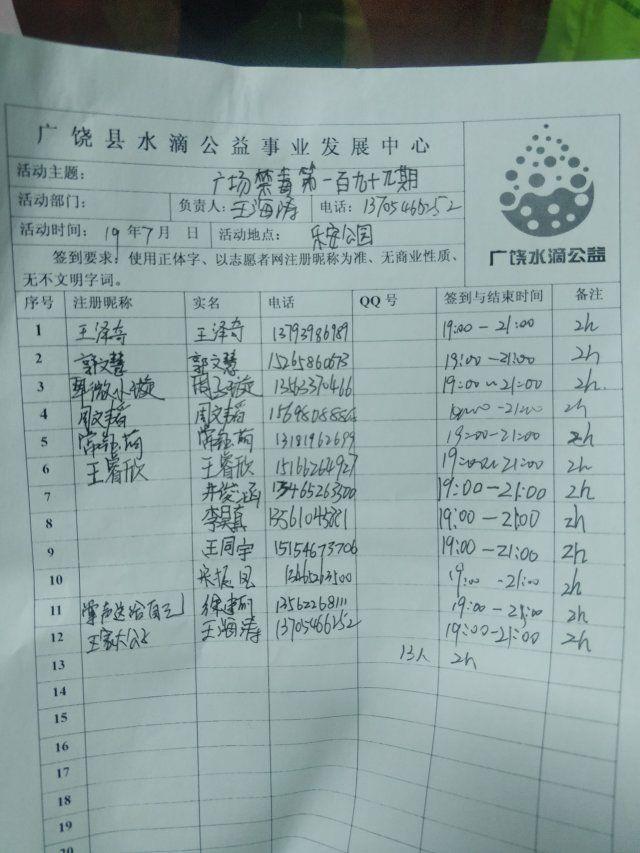 广饶县水滴公益事业发展中心
活动主题： 广场禁毒第一百九十九期
活动部门： 负责人：王海涛 电话：13705466252
活动时间：19年7月 日 活动地点：乐安公园
签到要求：使用正体字、以志愿者网注册昵称为准、无商业性质、
无不文明字词。
广饶水滴公益
序号 注册昵称 实名 电话 QQ号 签到与结束时间 备注
1 王泽奇 王泽奇 13793986989 19:00-21:00 2h
2 郭文慧 郭文慧 15265860673 19:00-21:00 2h
3 19:00-21:00 2h
4 周文韬 周文韬 -21:00 2h
5 13181962699 19:00-21:00 2h
6 王睿欣 王睿欣 15166264927 19:00-21:00 2h
7 19:00-21:00 2h
8 李昊真 13561045881 19:00-21:00 2h
9 王同宇 15154673706 19:00-21:00 2h
10 19:00-21:00 2h
11 掌声送给自己 13562268111 19:00-21:00 2h
12 王海涛 13705466252 19:00-21:00 2h
13 13人 2h
14
15
16
17
18
19
20